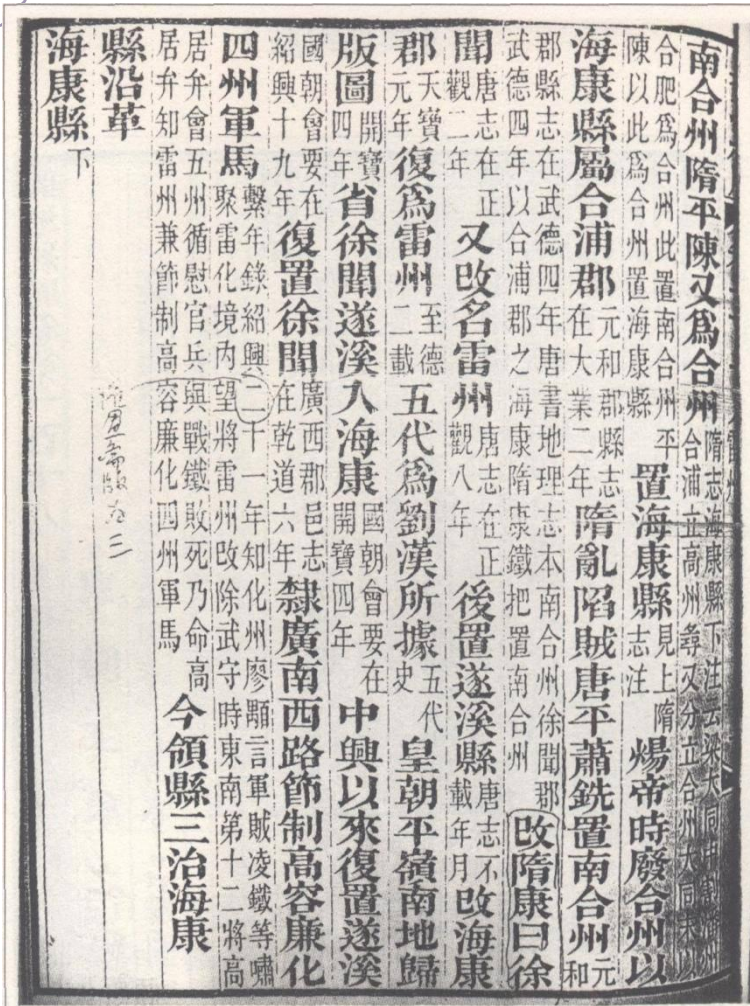 南合州隋平陳又爲合州隋志海康縣下注云梁大同中割番州合浦立高州尋又分立合州大同末以
合肥爲合州此置南合州平陳以此爲合州置海康縣置海康縣見上隋志注煬帝時廢合州以
海康縣屬合浦郡元和郡縣志在大業二年隋亂陷賊唐平蕭銑置南合州元和
郡縣志在武德四年唐書地理志本南合州徐聞郡武德四年以合浦郡之海康隋康鐵把置南合州改隋康曰徐
聞唐志在正觀二年又改名雷州唐志在正觀八年後置遂溪縣唐志不載年月改海康
郡天寶元年復爲雷州至德二載五代爲劉漢所據五代史皇朝平嶺南地歸
版圖開寶四年省徐聞遂溪入海康國朝會要在開寶四年中興以來復置遂溪
國朝會要在紹興十九年復置徐聞廣西郡邑志在乾道六年隸廣南西路節制高容廉化
四州軍馬繫年錄紹興二十一年知化州廖顒言軍賊凌鐵等嘯聚雷化境内望將雷州改除武守時東南第十二將高
居弁會五州循慰官兵與戰鐵敗死乃命高居弁知雷州兼節制高容廉化四州軍馬今領縣三治海康
縣沿革
海康縣下